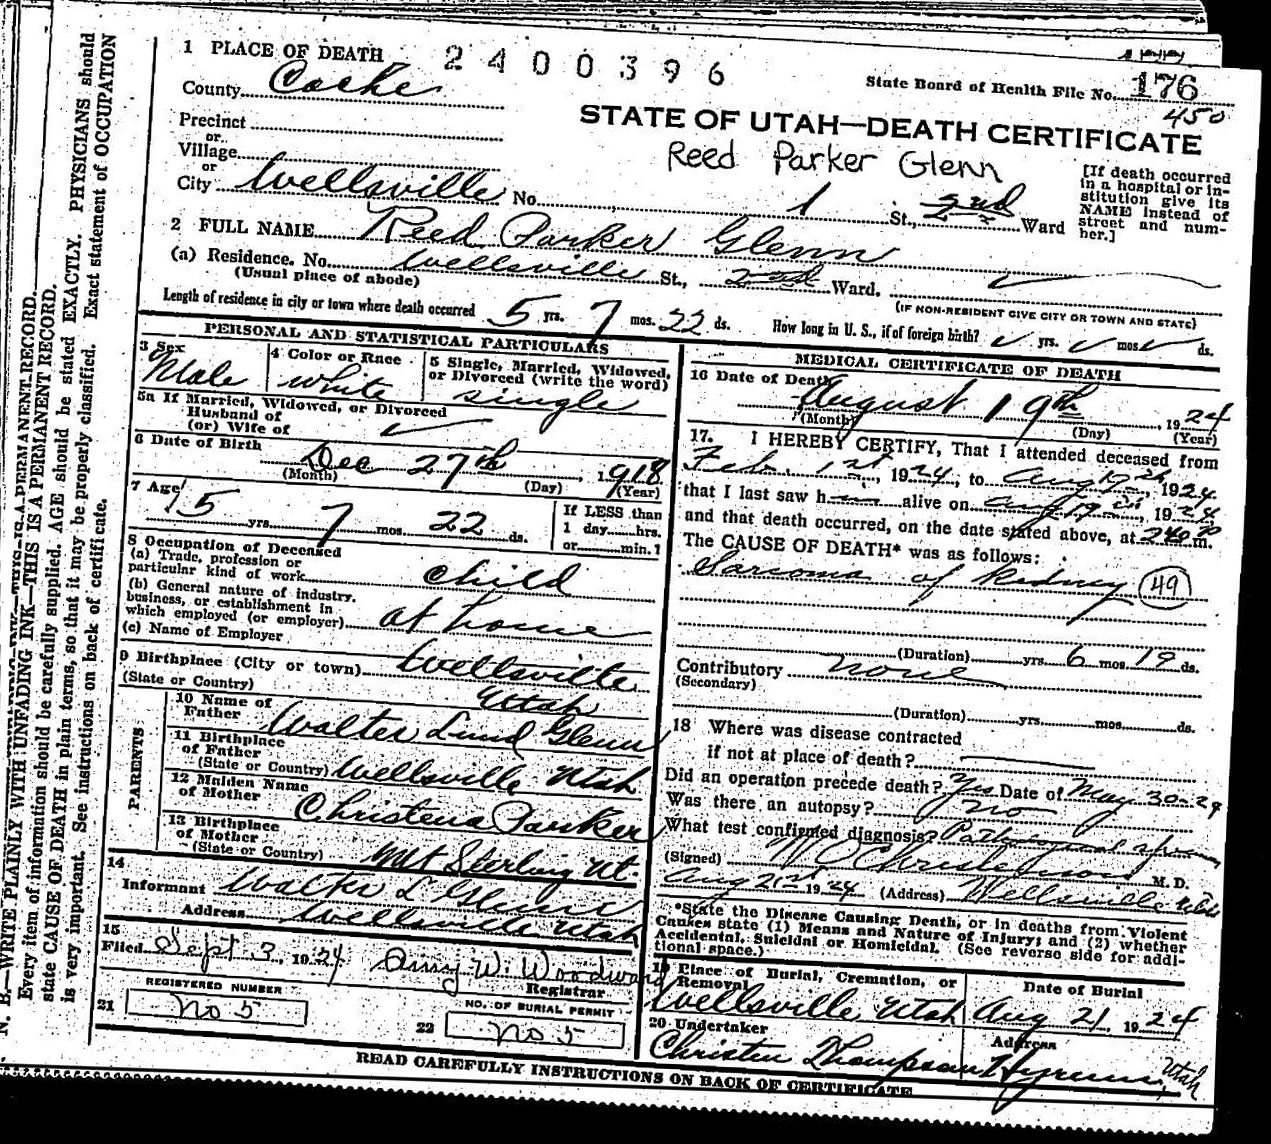 1 PLACE OF DEATH 2400396
State Board of Health File No. 176
County Cache
450
STATE OF UTAH—DEATH CERTIFICATE
Precinct
or
Village
or
Reed Parker Glenn
City Wellsville No. 1 St., 2nd Ward
[If death occurred in a hospital or institution give its NAME instead of street and number.]
2 FULL NAME Reed Parker Glenn
(a) Residence. No. Wellsville St., 2nd Ward.
(Usual place of abode)
(IF NON-RESIDENT GIVE CITY OR TOWN AND STATE)
Length of residence in city or town where death occurred 5 yrs. 7 mos. 22 ds. How long in U. S., if of foreign birth? yrs. mos. ds.
PERSONAL AND STATISTICAL PARTICULARS
3 Sex
Male
4 Color or Race
white
5 Single, Married, Widowed, or Divorced (write the word)
single
5a If Married, Widowed, or Divorced
Husband of
(or) Wife of
6 Date of Birth
Dec 27th, 1918
(Month) (Day) (Year)
7 Age
5 yrs. 7 mos. 22 ds.
If LESS than
1 day......hrs.
or......min.?
8 Occupation of Deceased
(a) Trade, profession or
particular kind of work child
(b) General nature of industry,
business, or establishment in
which employed (or employer) at home
(c) Name of Employer
9 Birthplace (City or town) Wellsville
(State or Country) Utah
PARENTS
10 Name of
Father Walter Lund Glenn
11 Birthplace
of Father
(State or Country) Wellsville Utah
12 Maiden Name
of Mother Christena Parker
13 Birthplace
of Mother
(State or Country) Mt Sterling Ut.
14
Informant Walter L Glenn
Address Wellsville Utah
15
Filed Sept 3, 1924 Amy W. Woodward
Registrar
REGISTERED NUMBER
21 No 5
NO. OF BURIAL PERMIT
22 No 5
MEDICAL CERTIFICATE OF DEATH
16 Date of Death
August 19th, 1924
(Month) (Day) (Year)
17. I HEREBY CERTIFY, That I attended deceased from
Feb. 1st, 1924, to Aug 19th, 1924
that I last saw h alive on Aug 19th, 1924
and that death occurred, on the date stated above, at 240 P m.
The CAUSE OF DEATH* was as follows:
Sarcoma of Kidney 49
(Duration) yrs. 6 mos. 19 ds.
Contributory none
(Secondary)
(Duration) yrs. mos. ds.
18 Where was disease contracted
if not at place of death?
Did an operation precede death? Yes Date of May 30-24
Was there an autopsy? no
What test confirmed diagnosis?
(Signed) W O Christensen M. D.
Aug 21st 1924 (Address) Wellsville Utah
*State the Disease Causing Death, or in deaths from Violent
Causes state (1) Means and Nature of Injury; and (2) whether
Accidental, Suicidal or Homicidal. (See reverse side for additional space.)
19 Place of Burial, Cremation, or
Removal
Date of Burial
Wellsville, Utah Aug 21 1924
20 Undertaker
Address
Christen Thompson Hyrum, Utah
READ CAREFULLY INSTRUCTIONS ON BACK OF CERTIFICATE
N. B.—WRITE PLAINLY WITH UNFADING INK—THIS IS A PERMANENT RECORD.
Every item of information should be carefully supplied. AGE should be stated EXACTLY. PHYSICIANS should
state CAUSE OF DEATH in plain terms, so that it may be properly classified. Exact statement of OCCUPATION
is very important. See instructions on back of certificate.